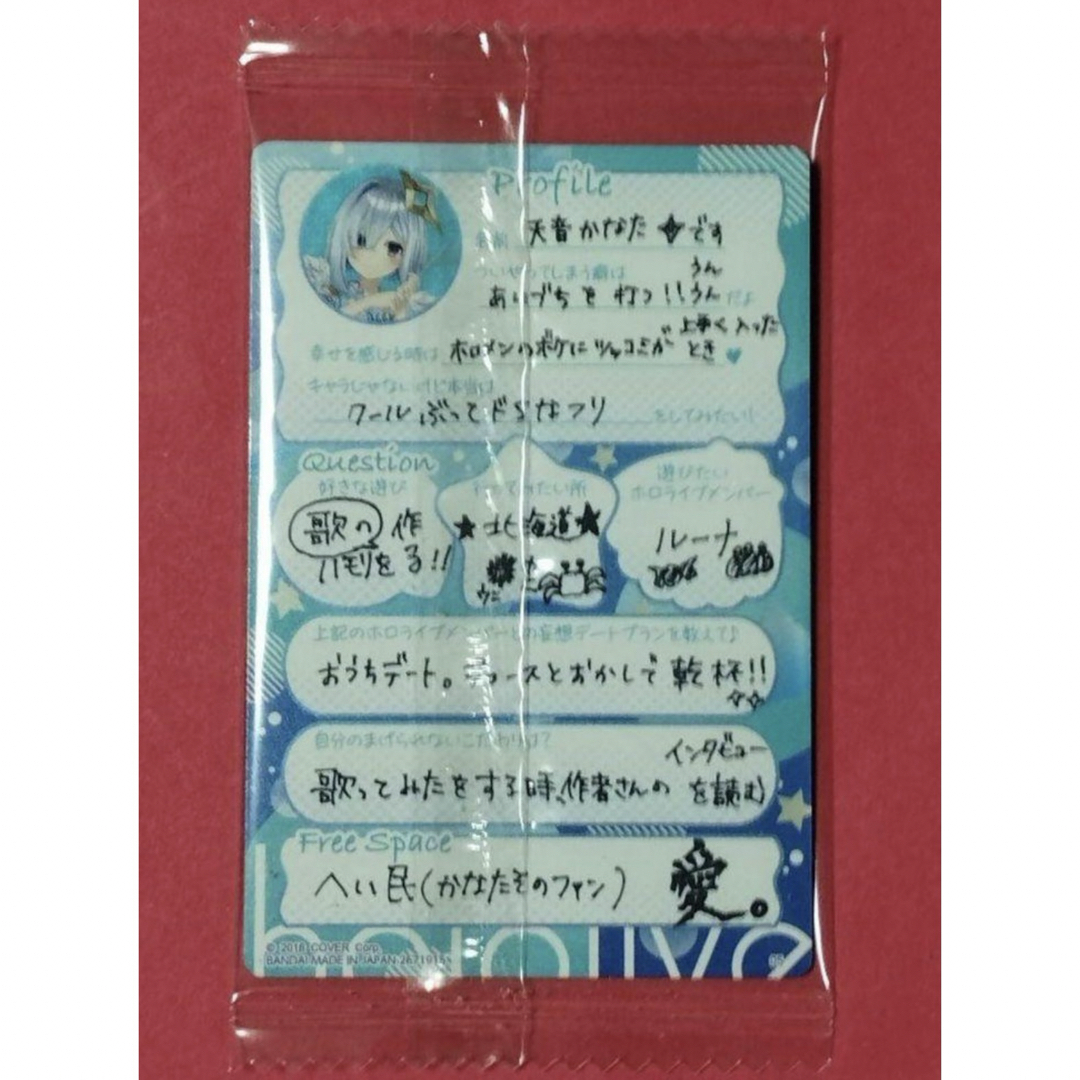 Profile
名前 天音かなた です
ついやってしまう癖は うん
あいづちを打つ!! うん だよ
上手く入った
幸せを感じる時は ホロメンのボケにツッコミが とき
キャラじゃないけど本当は
クールぶってドSなフリ をしてみたい!
Question
好きな遊び
歌の 作
ハモリを る!!
行ってみたい所
北海道
ウニ
遊びたい
ホロライブメンバー
ルーナ
上記のホロライブメンバーとの妄想デートプランを教えて♪
おうちデート。ジュースとおかしで乾杯!!
自分のまげられないこだわりは?
インタビュー
歌ってみたをする時、作者さんの を読む
Free Space
へい民(かなたそのファン) 愛。
© 2016 COVER Corp.
BANDAI MADE IN JAPAN 2671915
05
hololive